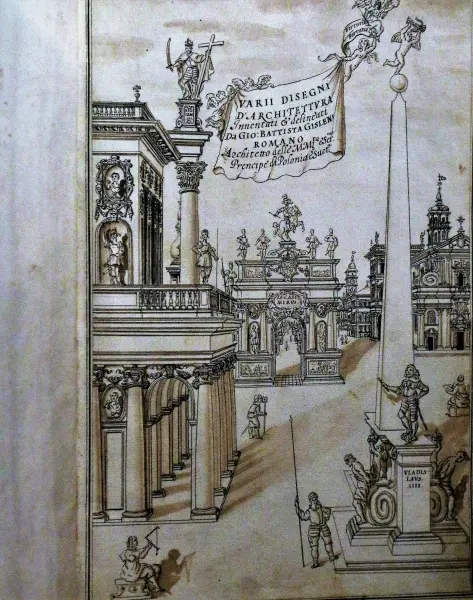 VARII DISEGNI
D'ARCHITETTVRA
Inuentati & delineati
DA GIO: BATTISTA GISLENI
ROMANO
Architetto delle MM.
Prencipe di Polonia e Suet.
VLADIS
LAVS
IIII.